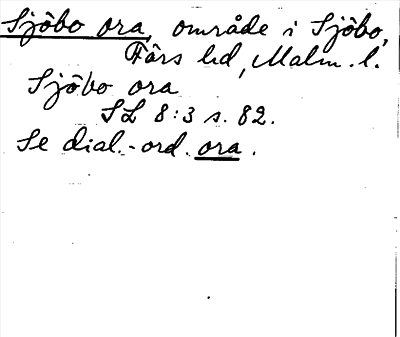 Sjöbo ora, område i Sjöbo,
Färs hd, Malm. l.
Sjöbo ora
SL 8:3 s. 82.
Se dial.-ord. ora.